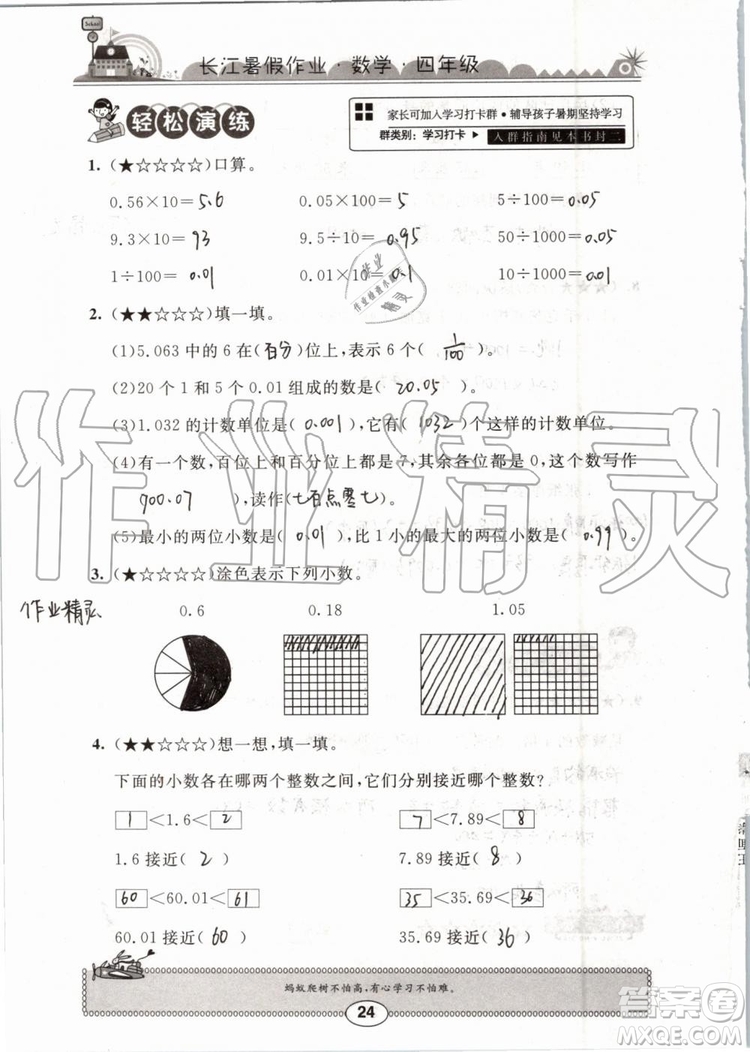 School
长江暑假作业·数学·四年级
轻松演练
家长可加入学习打卡群·辅导孩子暑期坚持学习
群类别：学习打卡 ▶ 入群指南见本书封二
1. (★☆☆☆☆)口算。
0.56×10= 5.6 0.05×100= 5 5÷100= 0.05
9.3×10= 93 9.5÷10= 0.95 50÷1000= 0.05
1÷100= 0.01 0.01×10= 0.1 10÷1000= 0.01
2. (★★☆☆☆)填一填。
(1)5.063 中的 6 在(百分)位上，表示 6 个( 1/100 )。
(2)20 个 1 和 5 个 0.01 组成的数是( 20.05 )。
(3)1.032 的计数单位是( 0.001 )，它有( 1032 )个这样的计数单位。
(4)有一个数，百位上和百分位上都是 7，其余各位都是 0，这个数写作
( 700.07 )，读作(七百点零七)。
(5)最小的两位小数是( 0.01 )，比 1 小的最大的两位小数是( 0.99 )。
3. (★☆☆☆☆)涂色表示下列小数。
作业精灵
0.6 0.18 1.05
4. (★★☆☆☆)想一想，填一填。
下面的小数各在哪两个整数之间，它们分别接近哪个整数?
1 <1.6< 2 7 <7.89< 8
1.6 接近( 2 ) 7.89 接近( 8 )
60 <60.01< 61 35 <35.69< 36
60.01 接近( 60 ) 35.69 接近( 36 )
蚂蚁爬树不怕高，有心学习不怕难。
24
作业精灵
答案圈
MXQE.COM